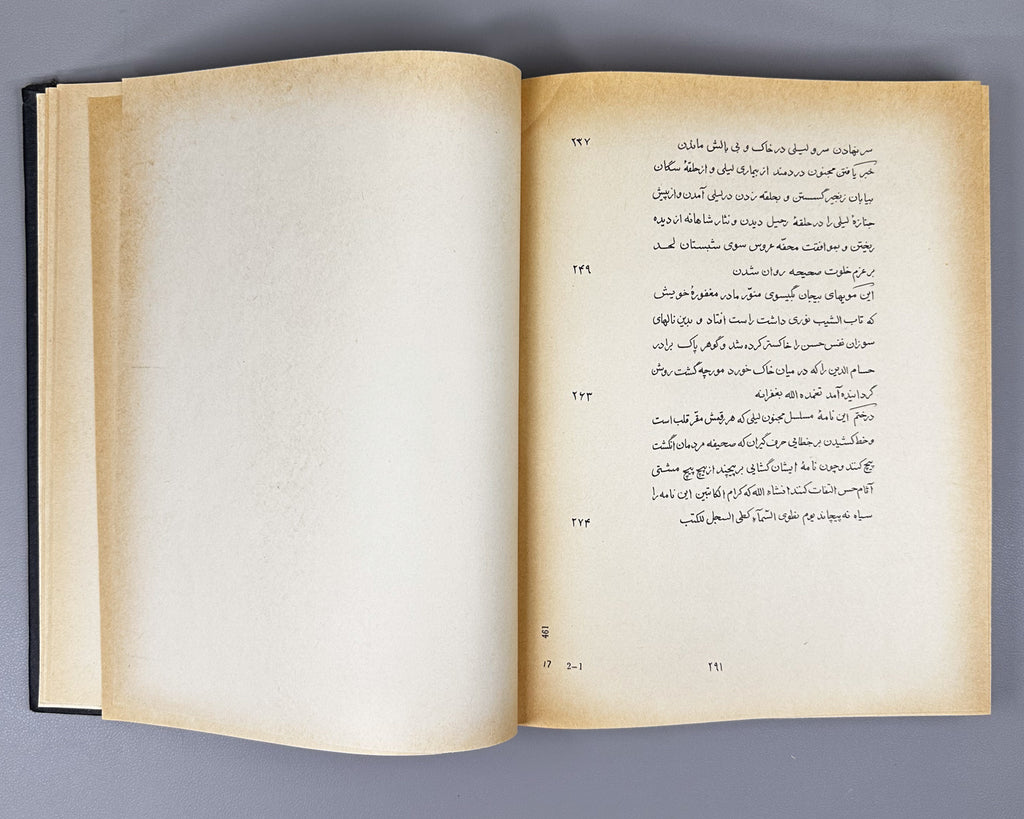 سر نهادن سرو لیلی در خاک و بی بالش ماندن ۲۳۷
خبر یافتن مجنون دردمند از بیماری لیلی و از حلقهٔ سگان
بیابان زنجیر گسستن و بحلقه زدن در لیلی آمدن و از پیش
جنازهٔ لیلی را در حلقهٔ رحیل دیدن و نثار شاهانه از دیده
ریختن و بموافقت محفّه عروس سوی شبستان لحد
بر عزم خلوت صحیحه روان شدن ۲۴۹
این مویهای بیجان بگیسوی منوّر مادر مغفورهٔ خویش
که تاب الشیب نوری داشت راست افتاد و بدین نالهای
سوزان نفس حسن را خاکستر کرده شد و گوهر پاک برادر
حسام الدین را که در میان خاک خورد مورچه گشت روشن
گردانیده آمد تغمده الله بغفرانه ۲۶۳
در ختم این نامهٔ مسلسل مجنون لیلی که هر رقمش مقرّ قلب است
و خط کشیدن بر خطایی حرف گیران که صحیفه مردمان انگشت
پیچ کنند و چون نامهٔ ایشان گشایی بر پیچند از هیچ پیچ مشتی
حسن التفات کنند انشاء الله که کرام الکاتبین این نامه را
سیاه نه پیچاند یوم نطوی السّمآء کطی السجل للکتب ۲۷۴
461
17 2–1
۲۹۱